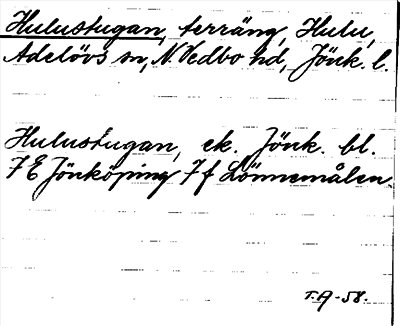 Hulustugan, terräng, Hulu,
Adelövs sn, N. Vedbo hd, Jönk. l.
Hulustugan, ek. Jönk. bl.
7 E Jönköping 7 f Lönnemålen
T.A-58.